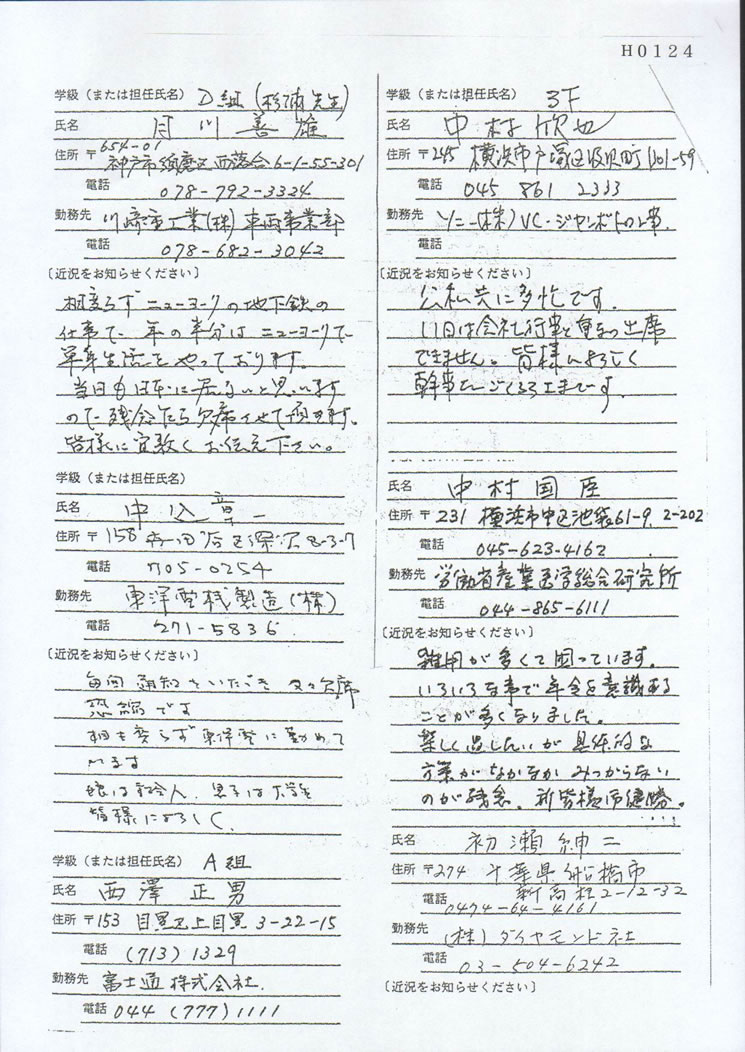 H0124
学級(または担任氏名) D組(杉浦先生)
氏名 月川善雄
住所 〒654-01
神戸市須磨区西落合6-1-55-301
電話 078-792-3324
勤務先 川崎重工業(株)車両事業部
電話 078-682-3042
〔近況をお知らせください〕
相変らずニューヨークの地下鉄の
仕事で、年の半分はニューヨークで
単身生活をやっております。
当日も日本に居ないと思います
ので残念ながら欠席させて頂きます。
皆様に宜敷くお伝え下さい。
学級(または担任氏名)
氏名 中込章一
住所 〒158 世田谷区深沢8-3-7
電話 705-0254
勤務先 東洋電機製造(株)
電話 271-5836
〔近況をお知らせください〕
毎回通知をいただき又々欠席
恐縮です
相も変らず東洋電に勤めて
います
娘は社会人、息子は大学生
皆様によろしく
学級(または担任氏名) A組
氏名 西澤正男
住所 〒153 目黒区上目黒3-22-15
電話 (713)1329
勤務先 富士通株式会社.
電話 044(777)1111
学級(または担任氏名) 3F
氏名 中村欣也
住所 〒245 横浜市戸塚区汲沢町1301-59
電話 045 861 2333
勤務先 ソニー(株)VC・ジャンボトロン事.
電話
〔近況をお知らせください〕
公私共に多忙です.
11日は会社行事と重なって出席
できません。皆様によろしく
幹事さんごくろうさまです.
氏名 中村国臣
住所 〒231 横浜市中区池袋61-9. 2-202
電話 045-623-4162
勤務先 労働省産業医学総合研究所
電話 044-865-6111
〔近況をお知らせください〕
雑用が多くて困っています.
いろいろな事で年令を意識する
ことが多くなりました。
楽しく過したいが具体的な
方策がなかなかみつからない
のが残念. 祈皆様御健勝。
氏名 初瀬紳二
住所 〒274 千葉県船橋市
新高根2-12-32
電話 0474-64-4161
勤務先 (株)ダイヤモンド社
電話 03-504-6242
〔近況をお知らせください〕